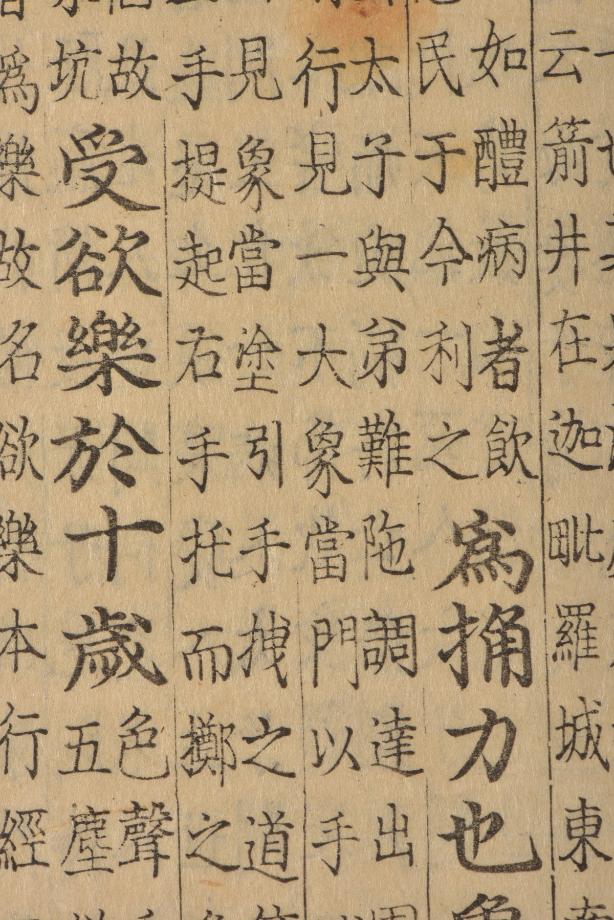 云箭井在迦毗羅城東
如醴病者飲
民于今利之
爲捔力也
太子與弟難陁調達出
行見一大象當門以手
見象當塗引手拽之道
手提起右手托而擲之
故
坑
受欲樂於十歲
色聲
五塵
爲樂故名欲樂本行經